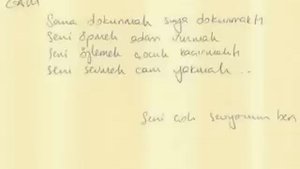 CAM
Sana dokunmak suya dokunmaktı
Seni öpmek adam vurmak
Seni özlemek çocuk kaçırmaktı
Seni sevmek cam yakmak ..
Seni çok seviyorum ben